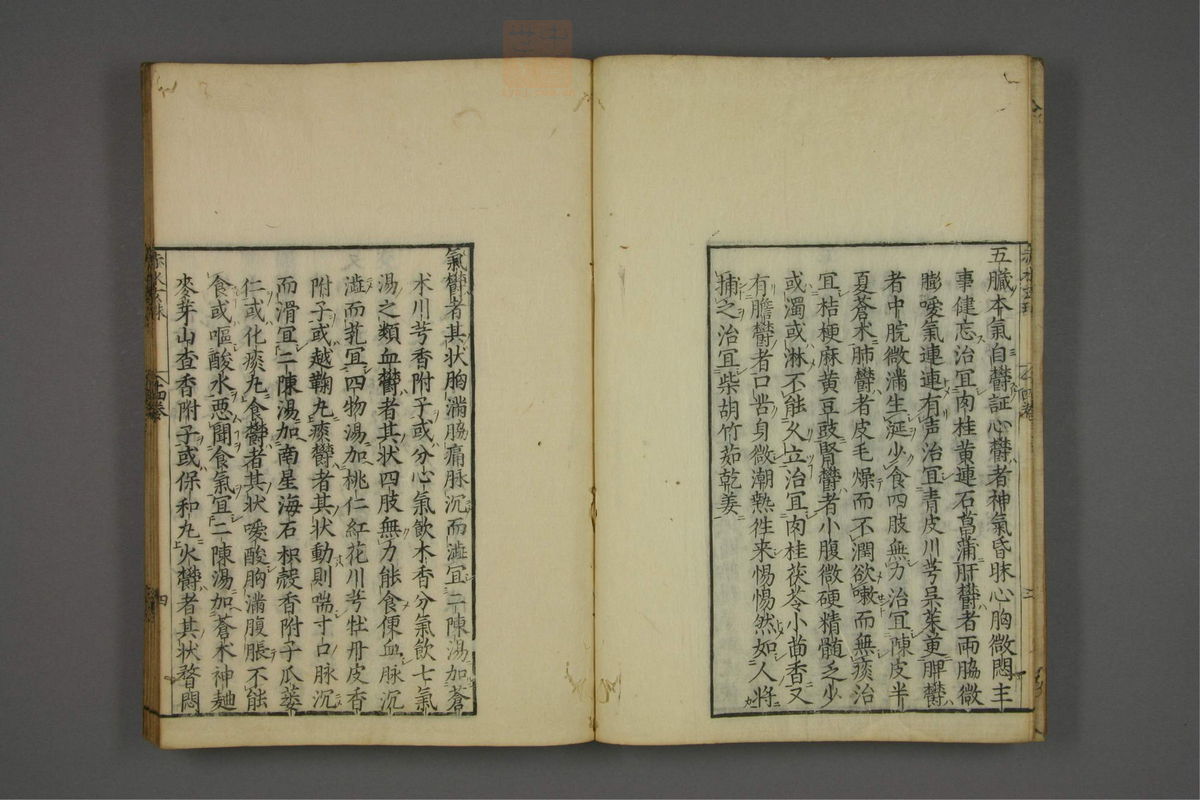 五臟本氣自鬱証心鬱者神氣昏昧心胸微悶主
事健忘治冝肉桂黄連石菖蒲肝鬱者両脇微
膨噯氣連連有声治冝青皮川芎呉茱萸脾鬱
者中脘微滿生涎少食四肢無力治冝陳皮半
夏蒼术肺鬱者皮毛燥而不潤欲嗽而無痰治
冝桔梗麻黄豆豉腎鬱者小腹微硬精髓乏少
或濁或淋不能久立治冝肉桂茯苓小茴香又
有膽鬱者口苦身微潮熱徃来惕惕然如人將
捕之治冝柴胡竹茹乾姜
氣鬱者其状胸滿脇痛脉沉而澁冝二陳湯加蒼
术川芎香附子或分心氣飲木香分氣飲七氣
湯之類血鬱者其状四肢無力能食便血脉沉
澁而芤冝四物湯加桃仁紅花川芎牡丹皮香
附子或越鞠丸痰鬱者其状動則喘寸口脉沉
而滑冝二陳湯加南星海石枳殼香附子瓜蔞
仁或化痰丸食鬱者其状噯酸胸滿腹脹不能
食或嘔酸水悪聞食氣冝二陳湯加蒼木神麯
麥芽山査香附子或保和丸火鬱者其状瞀悶